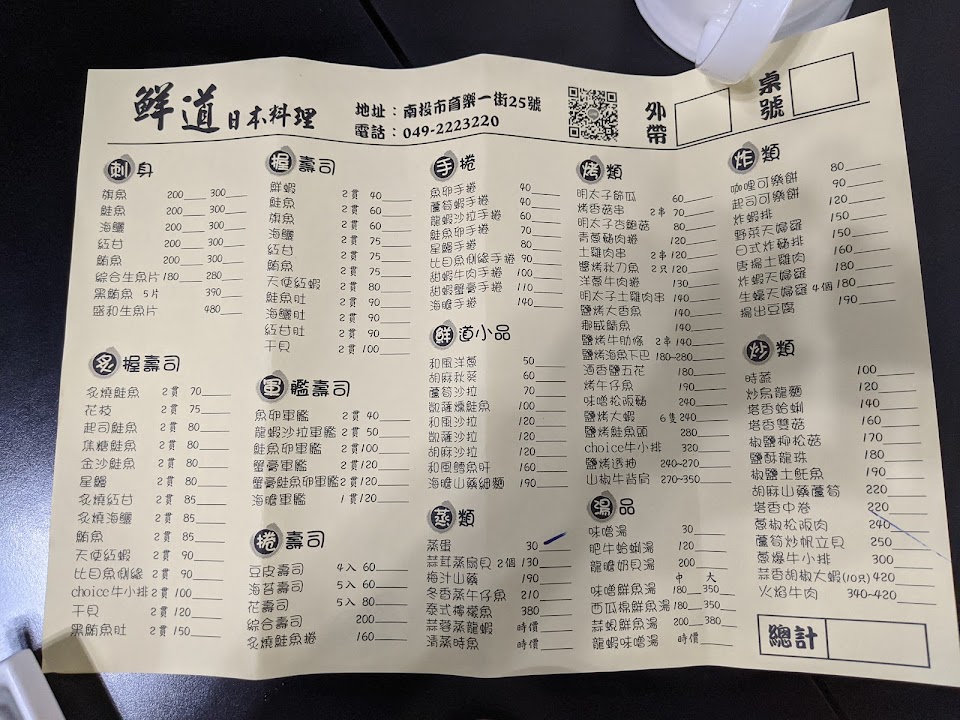 鮮道日本料理
地址：南投市育樂一街25號
電話：049-2223220
外帶
桌號
刺身
旗魚 200 300
鮭魚 200 300
海鱺 200 300
紅甘 200 300
鮪魚 200 300
綜合生魚片 180 280
黑鮪魚 5片 390
盛和生魚片 480
炙握壽司
炙燒鮭魚 2貫 70
花枝 2貫 75
起司鮭魚 2貫 80
焦糖鮭魚 2貫 80
金沙鮭魚 2貫 80
星鰻 2貫 80
炙燒紅甘 2貫 85
炙燒海鱺 2貫 85
鮪魚 2貫 85
天使紅蝦 2貫 90
比目魚側緣 2貫 90
choice牛小排 2貫 100
干貝 2貫 120
黑鮪魚肚 2貫 150
握壽司
鮮蝦 2貫 40
鮭魚 2貫 60
旗魚 2貫 60
海鱺 2貫 75
紅甘 2貫 75
鮪魚 2貫 75
天使紅蝦 2貫 80
鮭魚肚 2貫 90
海鱺肚 2貫 90
紅甘肚 2貫 90
干貝 2貫 100
軍艦壽司
魚卵軍艦 2貫 40
龍蝦沙拉軍艦 2貫 50
鮭魚卵軍艦 2貫 100
蟹膏軍艦 2貫 120
蟹膏鮭魚卵軍艦 2貫 120
海膽軍艦 1貫 120
捲壽司
豆皮壽司 4入 60
海苔壽司 5入 60
花壽司 5入 80
綜合壽司 200
炙燒鮭魚捲 160
手捲
魚卵手捲 40
蘆筍蝦手捲 40
龍蝦沙拉手捲 60
鮭魚卵手捲 70
星鰻手捲 80
比目魚側緣手捲 90
甜蝦牛肉手捲 100
甜蝦蟹膏手捲 110
海膽手捲 140
鮮道小品
和風洋蔥 50
胡麻秋葵 60
蘆筍沙拉 70
凱薩燻鮭魚 100
和風沙拉 120
凱薩沙拉 120
胡麻沙拉 120
和風鱈魚肝 160
海膽山藥細麵 190
蒸類
蒸蛋 30
蒜茸蒸扇貝 2個 130
梅汁山藥 190
冬香蒸牛仔魚 210
泰式檸檬魚 380
蒜蓉蒸龍蝦 時價
清蒸時魚 時價
烤類
明太子節瓜 60
烤香菇串 2串 70
明太子杏鮑菇 80
青蔥豬肉捲 120
土雞肉串 2串 120
鹽烤秋刀魚 2只 120
洋蔥牛肉捲 130
明太子土雞肉串 140
鹽烤大香魚 140
挪威鯖魚 140
鹽烤牛肋條 2串 140
鹽烤海魚下巴 180~280
酒香鹽五花 180
烤牛仔魚 190
味噌松阪豬 240
鹽烤大蝦 6隻 240
鹽烤鮭魚頭 280
choice牛小排 320
鹽烤透抽 240~270
山椒牛背肩 270~350
湯品
味噌湯 30
肥牛蛤蜊湯 120
龍膽奶貝湯 200
中 大
味噌鮮魚湯 180 350
西瓜棉鮮魚湯 180 350
蒜蜆鮮魚湯 200 380
龍蝦味噌湯 時價
炸類
咖哩可樂餅 80
起司可樂餅 90
炸蝦排 120
野菜天婦羅 150
日式炸豬排 150
唐揚土雞肉 160
炸蝦天婦羅 180
生蠔天婦羅 4個 180
揚出豆腐 190
炒類
時蔬 100
炒烏龍麵 120
塔香蛤蜊 140
塔香雙菇 160
椒鹽柳松菇 170
鹽酥龍珠 180
椒鹽土魠魚 190
胡麻山藥蘆筍 220
塔香中卷 220
蔥椒松阪肉 240
蘆筍炒帆立貝 250
蔥爆牛小排 300
蒜香胡椒大蝦(10只) 420
火焰牛肉 340~420
總計